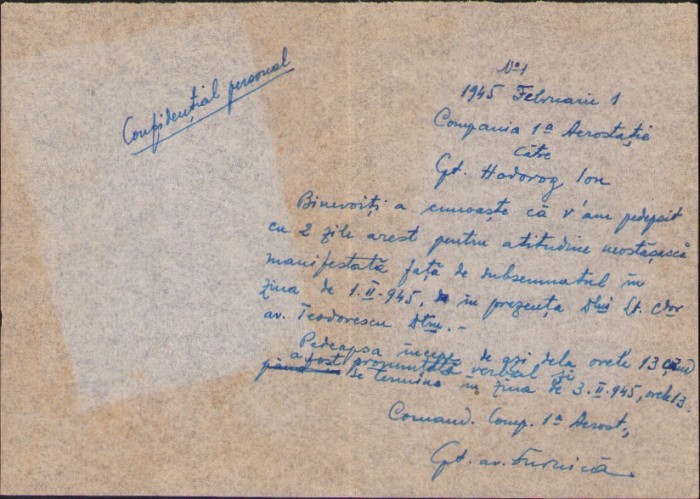 Confidențial personal
No 1
1945 Februarie 1
Compania 1a Aerostație
către
Cpt. Hodorog Ion
Binevoiți a cunoaște că v'am pedepsit
cu 2 zile arest pentru atitudine neostășească
manifestată față de subsemnatul în
ziua de 1.II.945, în prezența Dlui Lt. Cdor
av. Teodorescu Dtru. -
Pedeapsa începe de azi dela orele 13 când
a fost pronunțată verbal și
se termină în ziua de 3.II.945, orele 13.
Comand. Comp. 1a Aerost.,
Cpt. av. Furnică